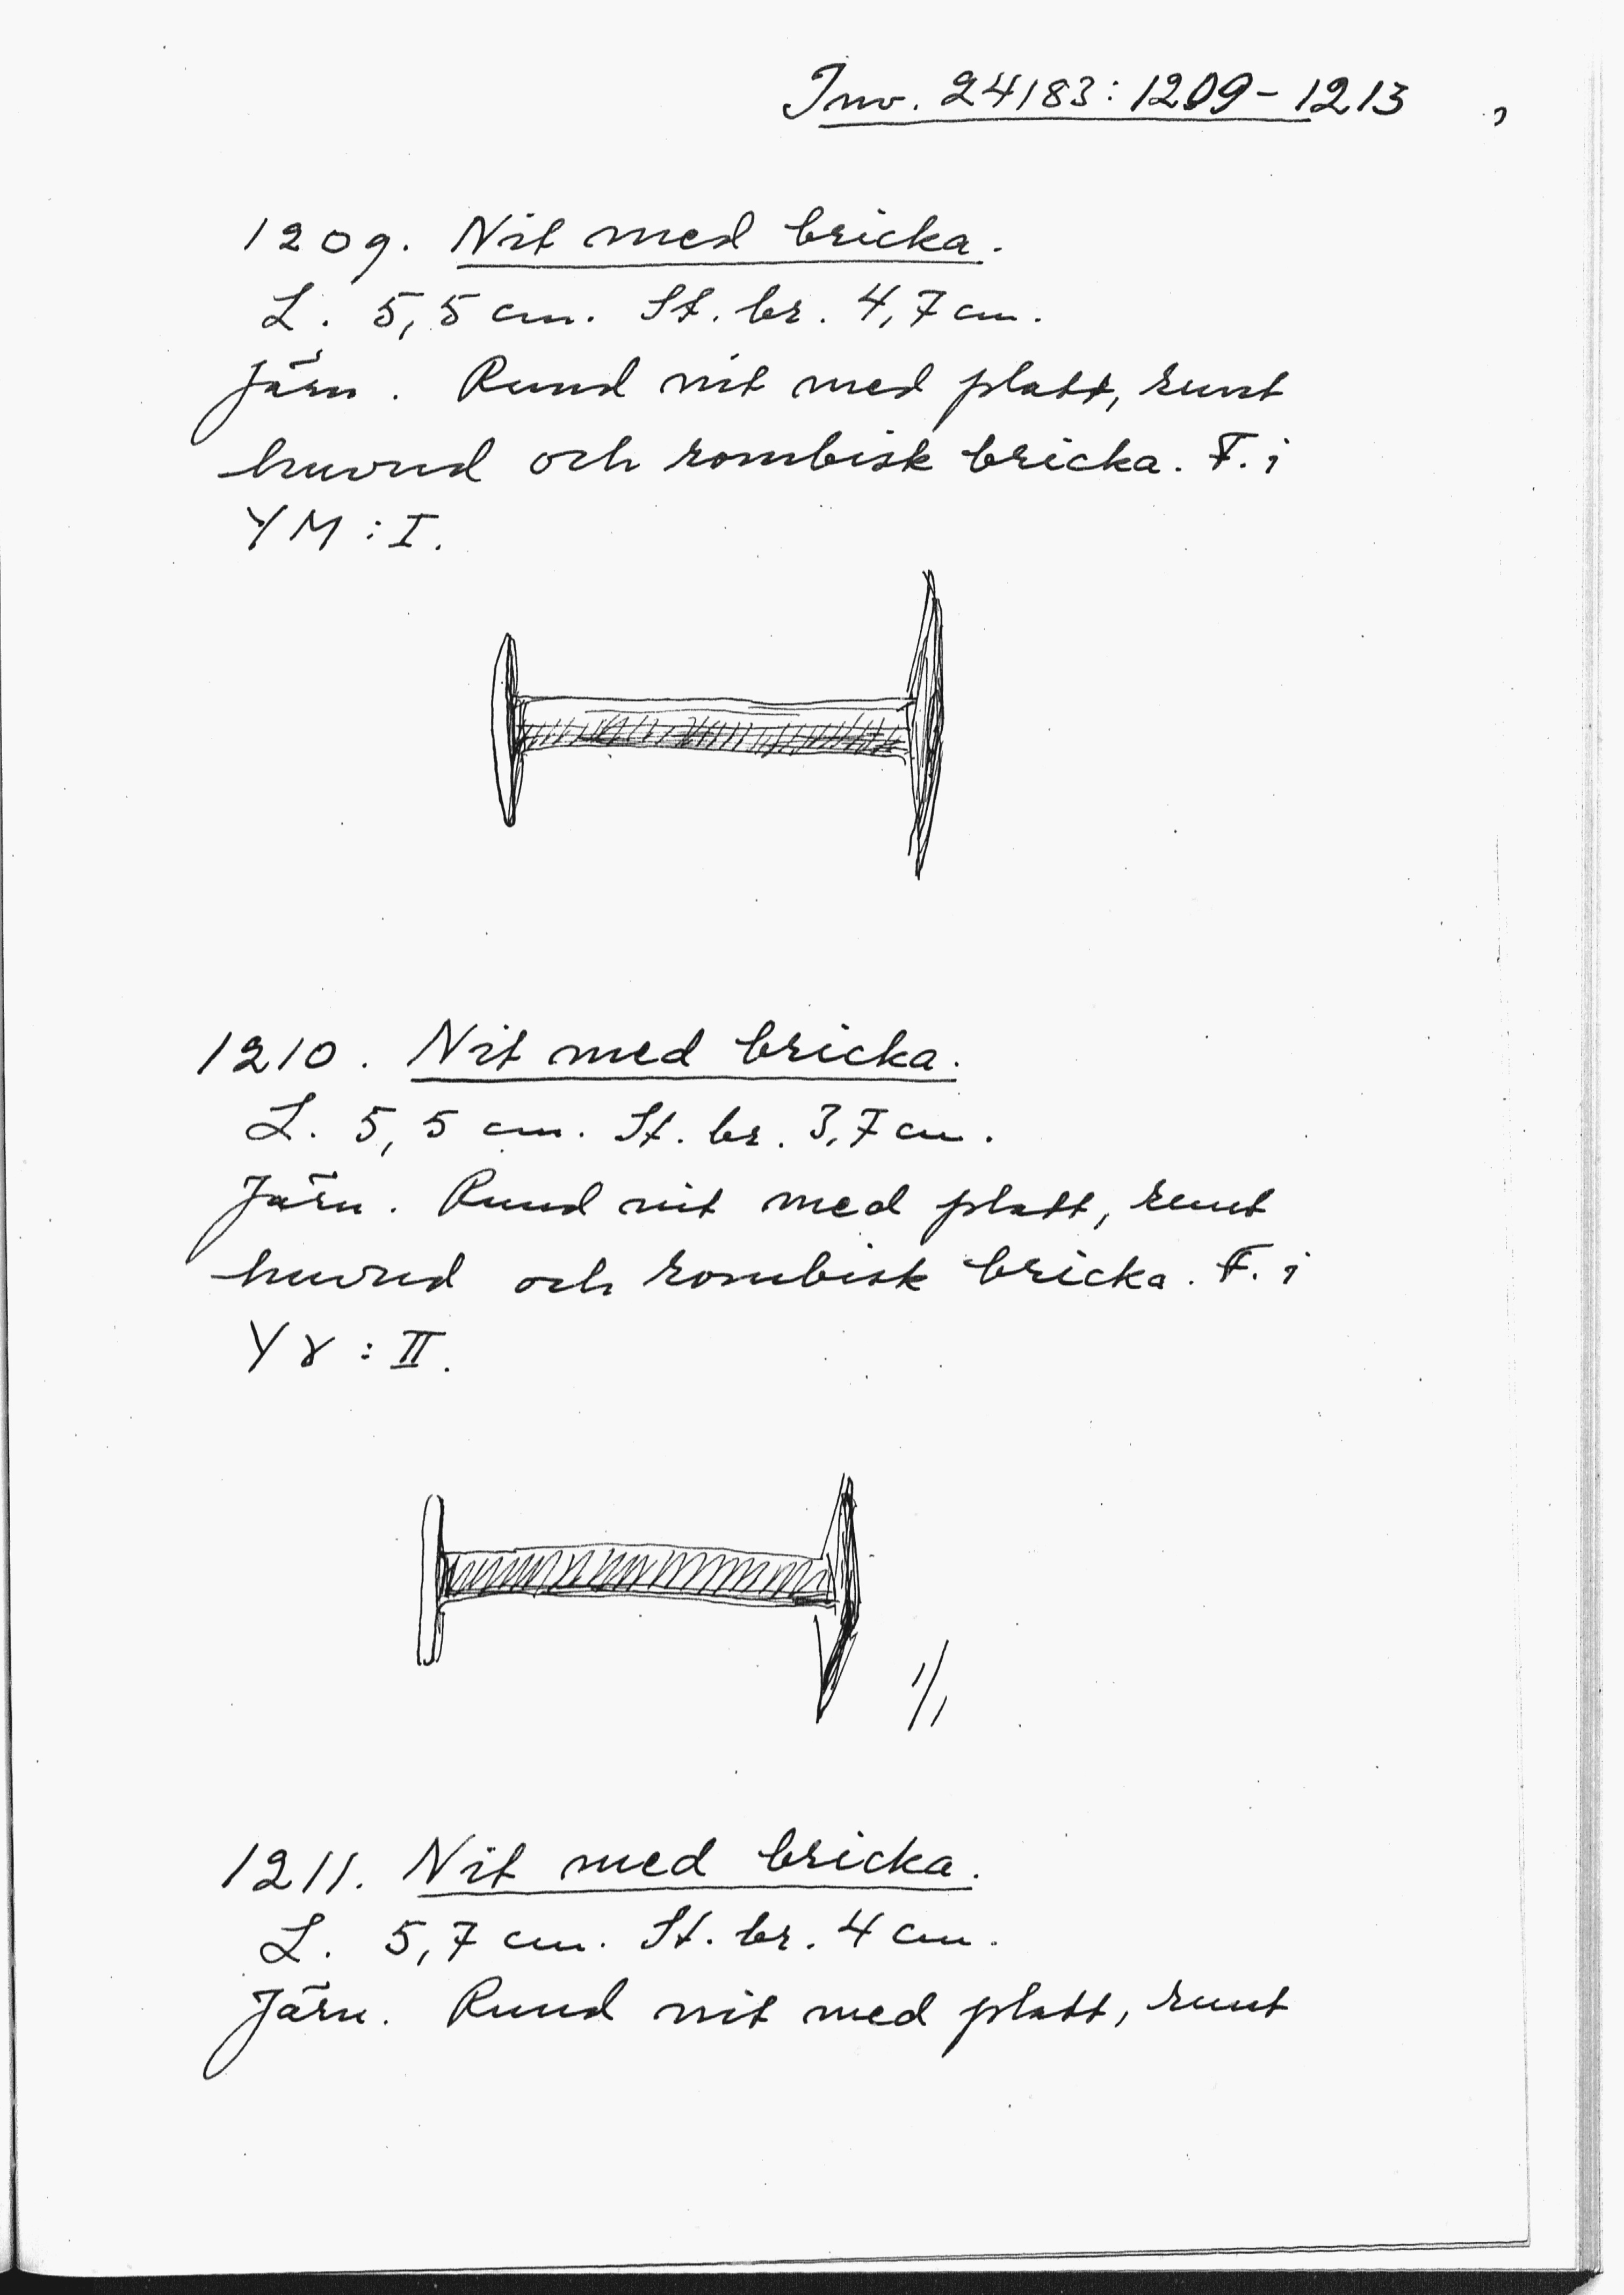 Inv. 24183:1209-1213
1209. Nit med bricka.
L. 5,5 cm. St. br. 4,7 cm.
Järn. Rund nit med platt, runt
huvud och rombisk bricka. F. i
YM:I.
1210. Nit med bricka.
L. 5,5 cm. St. br. 3,7 cm.
Järn. Rund nit med platt, runt
huvud och rombisk bricka. F. i
Yɣ:II.
1/1
1211. Nit med bricka.
L. 5,7 cm. St. br. 4 cm.
Järn. Rund nit med platt, runt